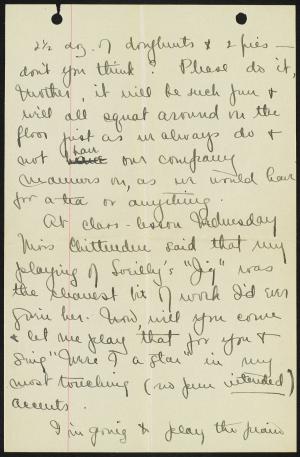 2½ doz. of doughnuts & 2 pies —
don't you think? Please do it,
Mother, it will be such fun &
will all squat around on the
floor just as we always do &
not have our company
manners on, as we would have
for a tea or anything.
At class-lesson Wednesday
Miss Chittenden said that my
playing of "Jig" was
the cleanest bit of work I'd ever
given her. Now, will you come
& let me play that for you &
sing "Were I a star" in my
most touching (no pun intended)
accents.
I'm going to play the piano